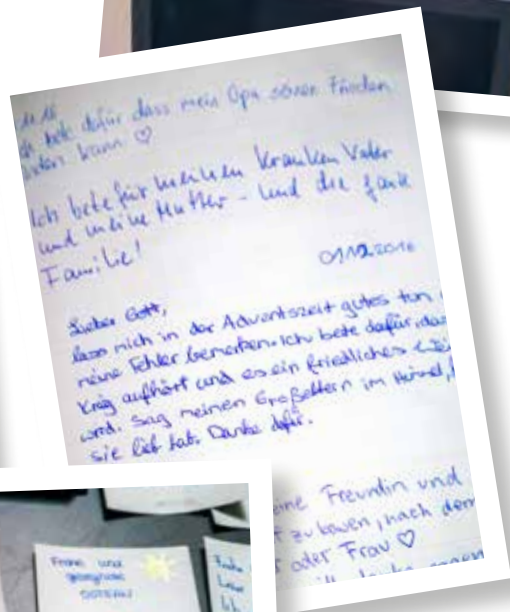 bete dafür dass mein Opa seinen Frieden
finden kann ♡
Ich bete für meinen kranken Vater
und meine Mutter - und die ganze
Familie!
01.12.2016
Lieber Gott,
lass mich in der Adventszeit gutes tun
meine Fehler bemerken. Ich bete dafür, dass
Krieg aufhört und es ein friedliches
wird. Sag meinen Großeltern im Himmel,
sie lieb hab. Danke dafür.
eine Freundin und
zu bauen, nach dem
oder Frau ♡
Frohe und
gesegnete
OSTERN!